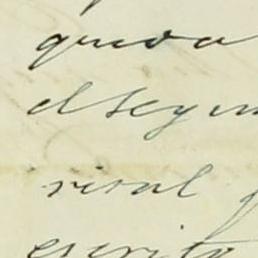 queda
el segun
rival
escrito